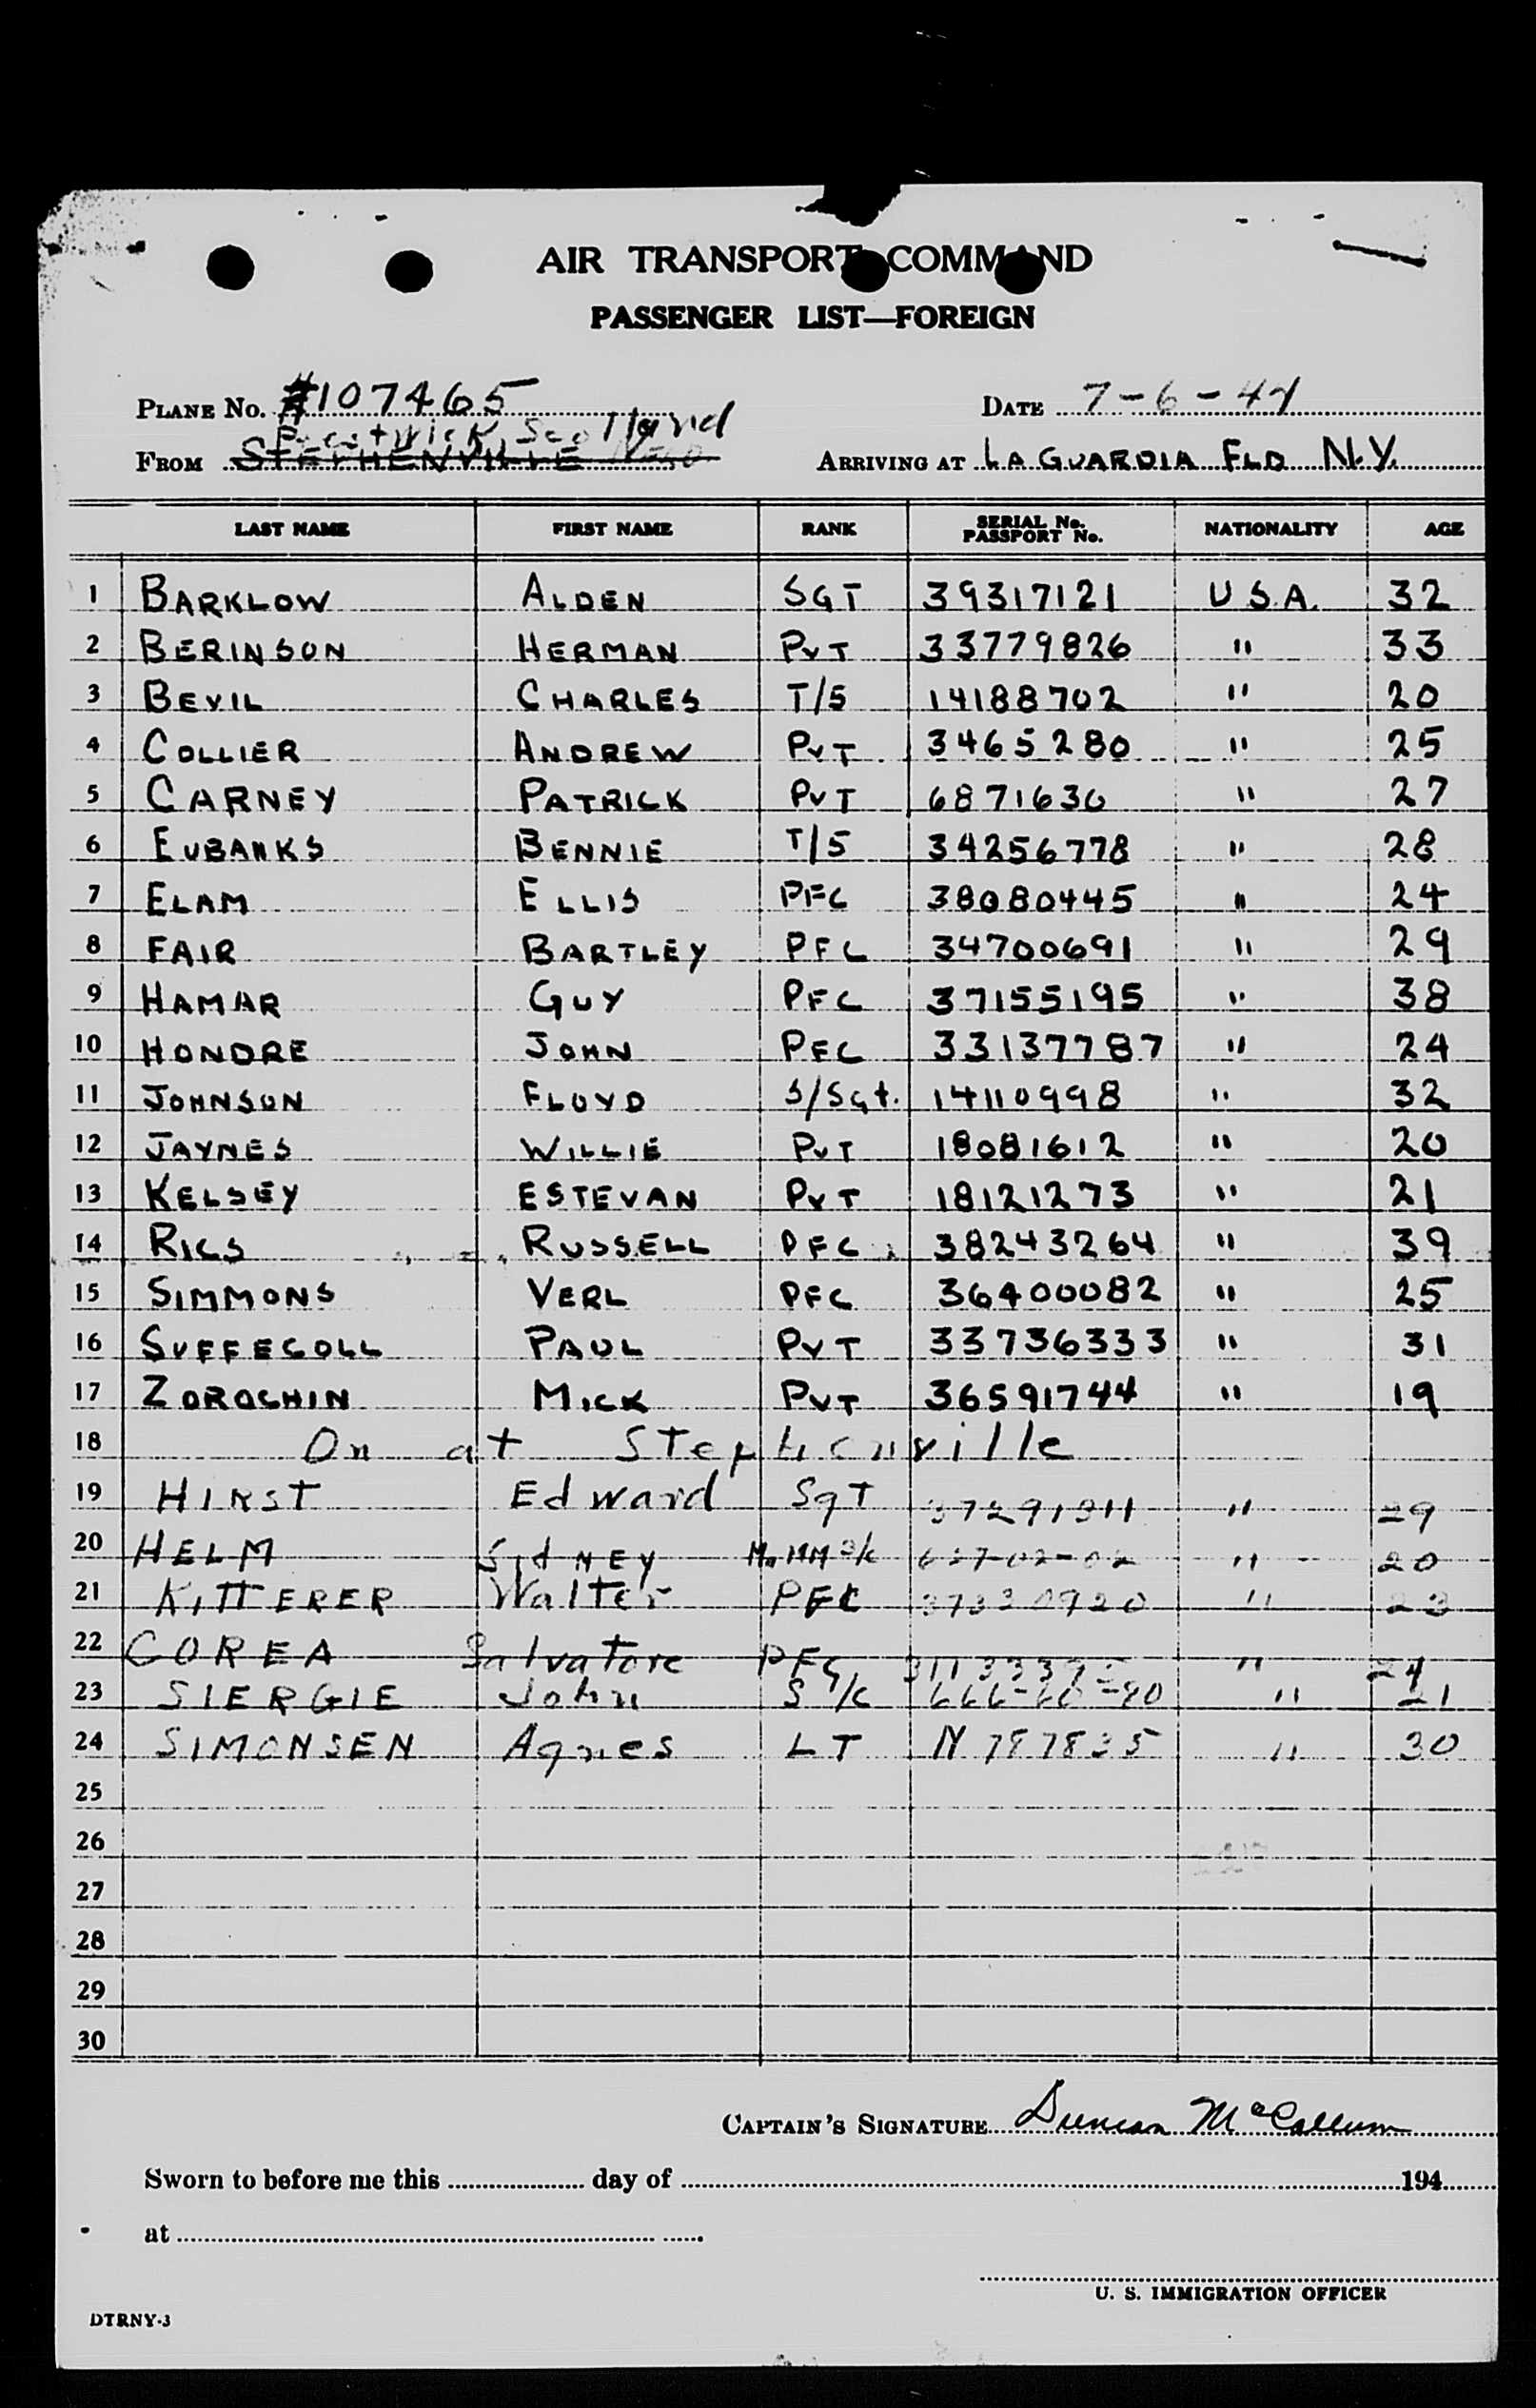 AIR TRANSPORT COMMAND
PASSENGER LIST—FOREIGN
PLANE No. #107465 DATE 7-6-44
Prestwick, Scotland
FROM STEPHENVILLE ARRIVING AT LA GUARDIA FLD N.Y.
LAST NAME FIRST NAME RANK SERIAL No. PASSPORT No. NATIONALITY AGE
1 BARKLOW ALDEN SGT 39317121 U.S.A. 32
2 BERINSON HERMAN PVT 33779826 " 33
3 BEVIL CHARLES T/5 14188702 " 20
4 COLLIER ANDREW PVT 3465280 " 25
5 CARNEY PATRICK PVT 6871630 " 27
6 EUBANKS BENNIE T/5 34256778 " 28
7 ELAM ELLIS PFC 38080445 " 24
8 FAIR BARTLEY PFC 34700691 " 29
9 HAMAR GUY PFC 37155195 " 38
10 HONDRE JOHN PFC 33137787 " 24
11 JOHNSON FLOYD S/Sgt. 14110998 " 32
12 JAYNES WILLIE PVT 18081612 " 20
13 KELSEY ESTEVAN PVT 18121273 " 21
14 RICS RUSSELL PFC 38243264 " 39
15 SIMMONS VERL PFC 36400082 " 25
16 SUFFECOLL PAUL PVT 33736333 " 31
17 ZOROCHIN MICK PVT 36591744 " 19
18 On at Stephenville
19 HIRST Edward SgT " 29
20 HELM SidNEY 627-02-02 " 20
21 KITTERER Walter PFC " 23
22 COREA Salvatore PFC " 24
23 SIERGIE John S 1/c 666-60-90 " 21
24 SIMONSEN Agnes LT N 787835 " 30
25
26
27
28
29
30
CAPTAIN'S SIGNATURE Duncan McCallum
Sworn to before me this day of 194
at
U. S. IMMIGRATION OFFICER
DTRNY-3